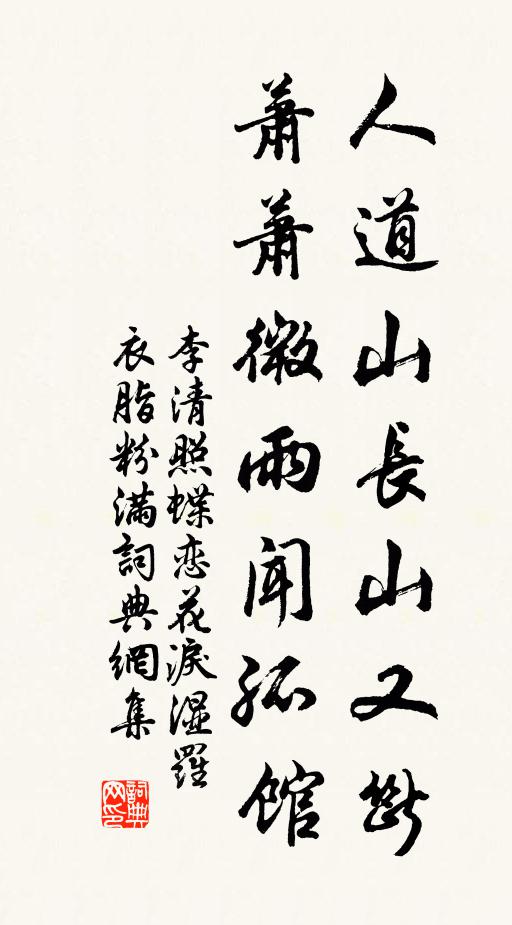 人道山長山又斷
蕭蕭微雨聞孤館
李清照蝶恋花淚湿羅
衣脂粉滿詞典網集
詞典
网印